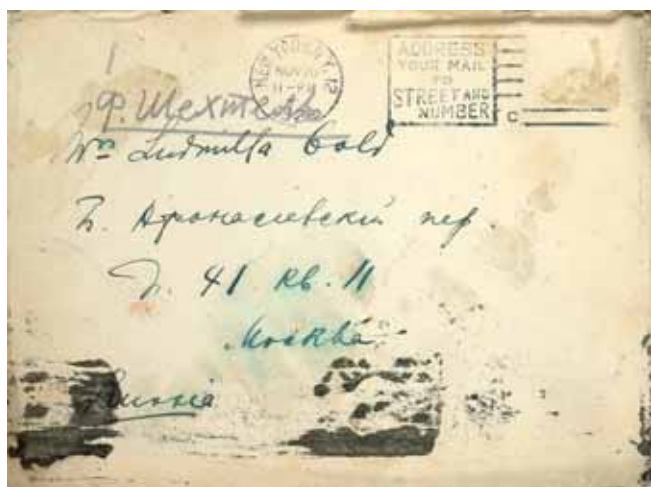 NEW YORK, N.Y. 12
NOV
11-PM
ADDRESS
YOUR MAIL
TO
STREET AND
NUMBER
C
Ф. Шехтель
Ludmilla Gold
Б. Афонасиевский пер.
Д. 41 кв. 11
Москва
Russia